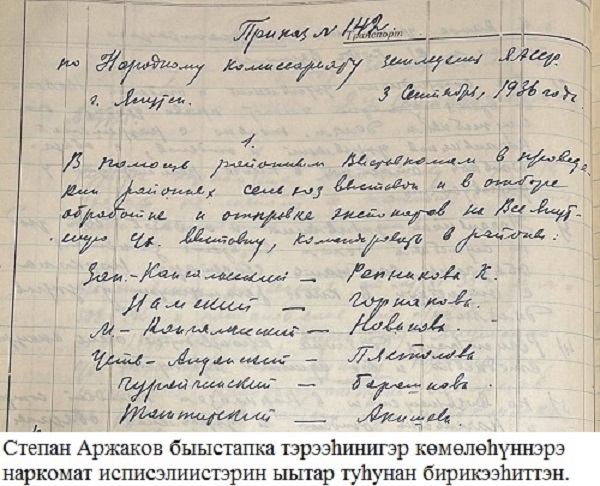 Приказ № 142.
Транспорт
по Народному комиссариату земледелия ЯАССР.
г. Якутск. 3 Сентября, 1936 года
1.
В помощь районным Выставкомам в проведе-
нии районных сель хоз выставок и в отборе
обработке и отправке экспонатов на Все Якут-
скую выставку, командировать в районы:
Зап.-Кангаласский — Репникова К.
Намский — Горнакова.
М-Кангаласский — Новикова.
Усть-Алданский — Пястолова
Чурапчинский — Баранкова.
Таттинский — Акишева
Степан Аржаков быыстапка тэрээһинигэр көмөлөһүннэрэ
наркомат исписэлиистэрин ыытар туһунан бирикээһиттэн.